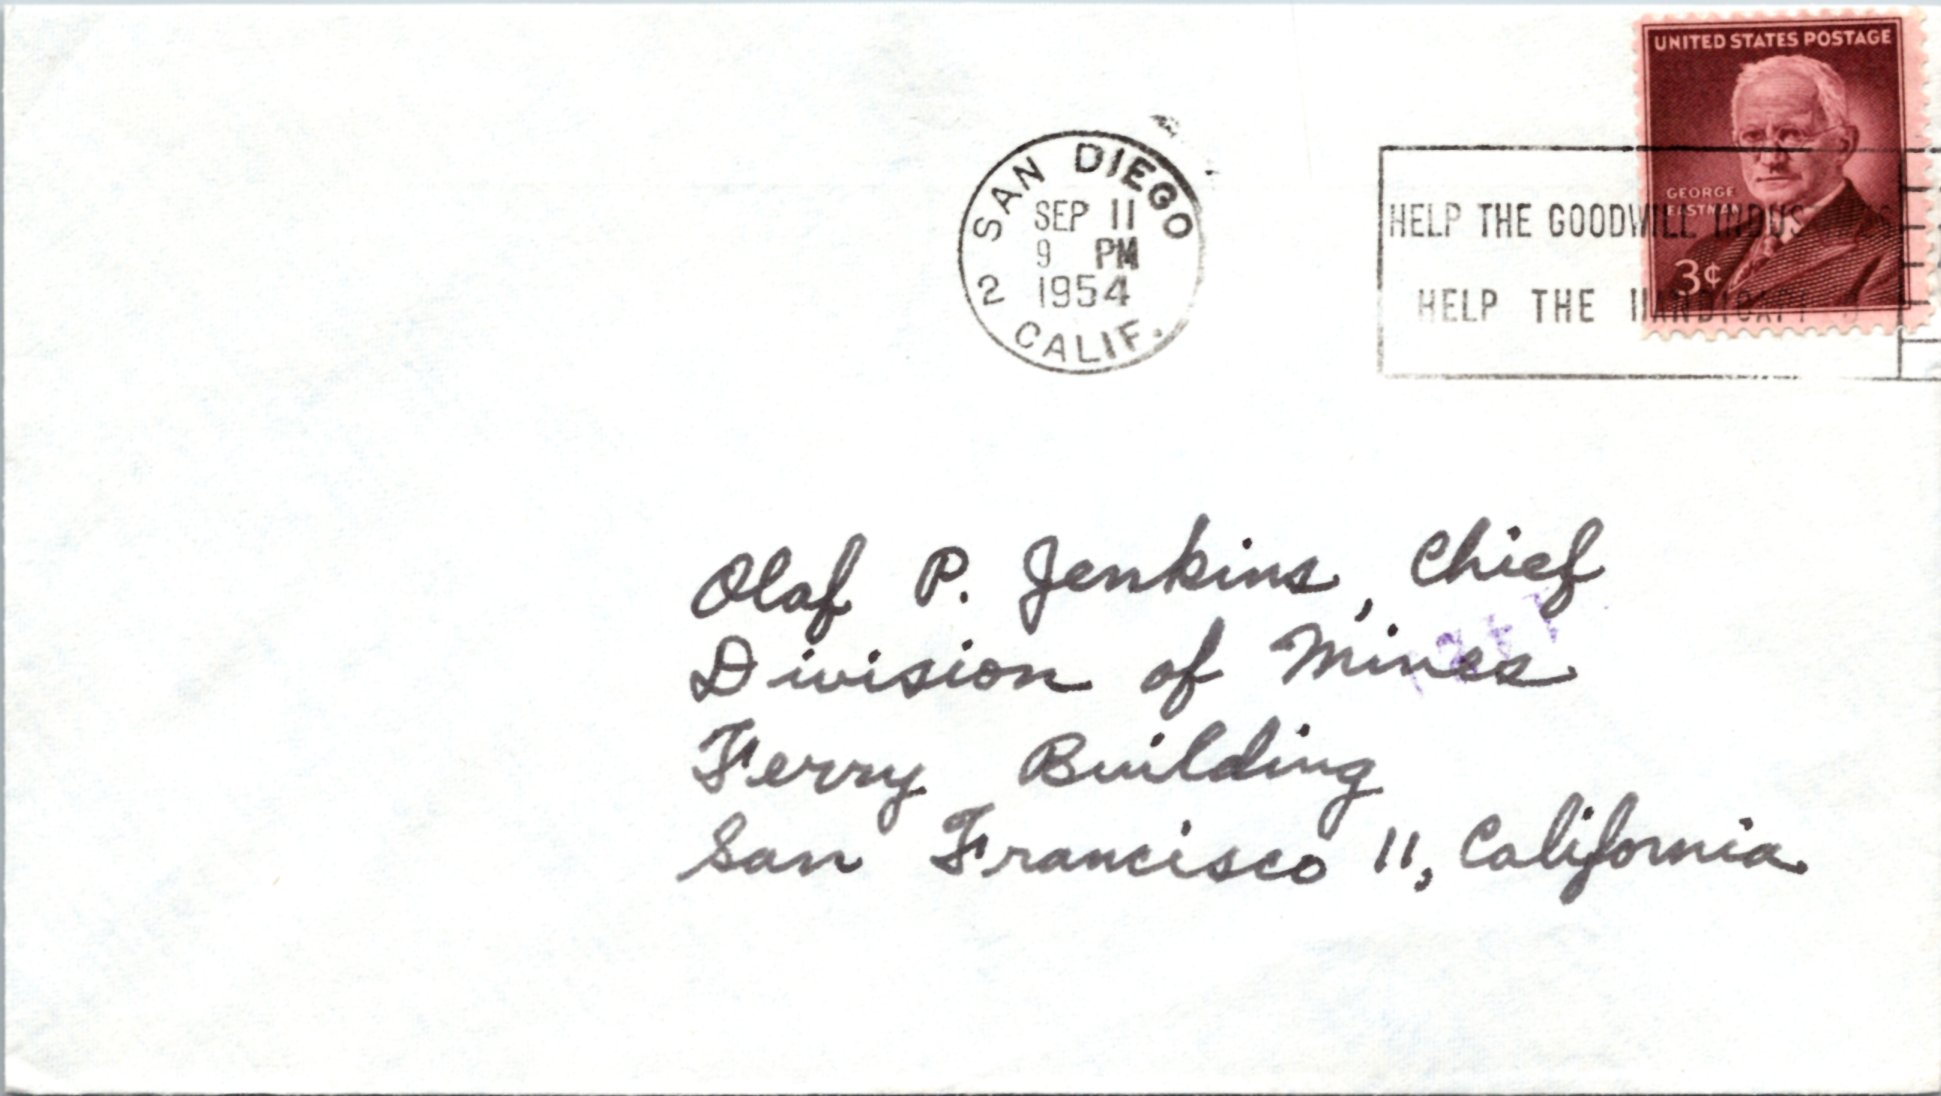 UNITED STATES POSTAGE
GEORGE
EASTMAN
3¢
SAN DIEGO
SEP 11
9 PM
1954
2
CALIF.
HELP THE GOODWILL INDUS
HELP THE HANDICAPP
Olaf P. Jenkins, Chief
Division of Mines
Ferry Building
San Francisco 11, California